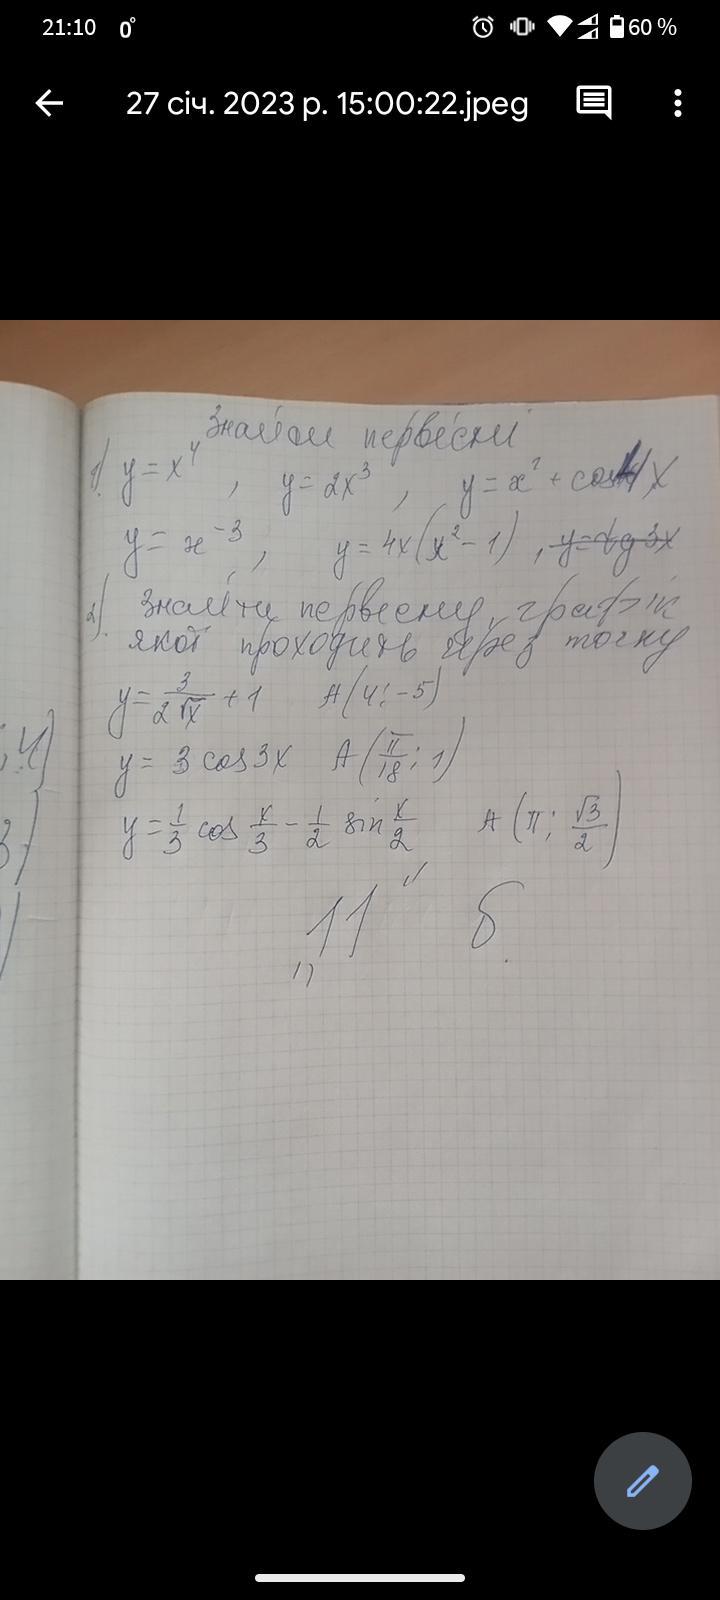 21:10 0° 60 %
27 січ. 2023 р. 15:00:22.jpeg
Знайти первісні
1) y = x⁴ , y = 2x³ , y = x² + cos x
y = x⁻³ , y = 4x(x² - 1) , y = tg 3x
2). Знайти первісну, графік
якої проходить через точку
y = 3/(2√x) + 1 A(4; -5)
y = 3 cos 3x A(π/18; 1)
y = 1/3 cos x/3 - 1/2 sin x/2 A(π; √3/2)
„11” б.
; 4)
3)
)